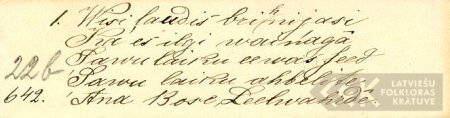 1. Wisi ļaudis brihnijasi
Ka es ilgi wainagâ
Sawu laiku eewas seed
22b Sawu laiku ahbelite.
642. Ana Bose, Leelwahrdê.
LATVIEŠU
FOLKLORAS
KRĀTUVE